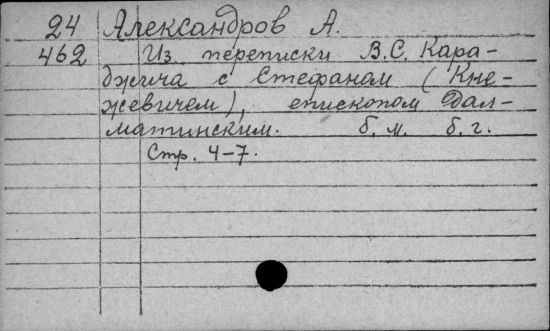 24 Александров А.
462 Из переписки В.С. Кара-
джича с Стефаном (Кне-
жевичем), епископом Дал-
матинским. б.м. б.г.
Стр. 4-7.